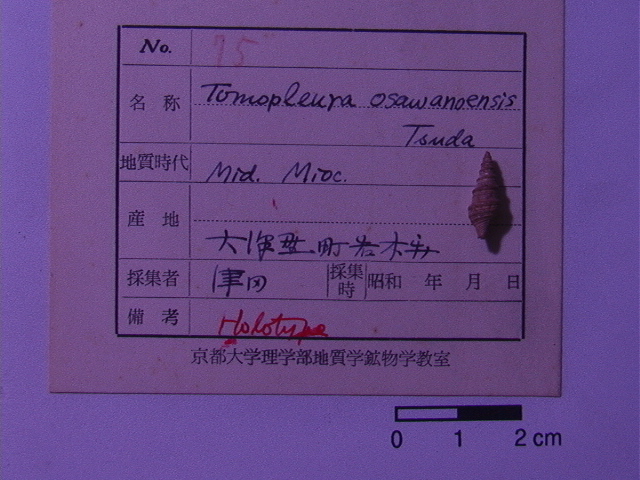 No. 75
名称 Tomopleura osawanoensis
Tsuda
地質時代 Mid. Mioc.
産地
大沢野町岩木
採集者 津田 採集時 昭和 年 月 日
備考 Holotype
京都大学理学部地質学鉱物学教室
0 1 2 cm